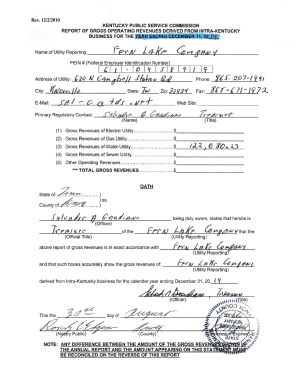 Rev. 12/2/2010
KENTUCKY PUBLIC SERVICE COMMISSION
REPORT OF GROSS OPERATING REVENUES DERIVED FROM INTRA-KENTUCKY
BUSINESS FOR THE YEAR ENDING DECEMBER 31, 2014
Name of Utility Reporting Fern Lake Company
FEIN # (Federal Employer Identification Number)
61-0438919
Address of Utility: 620 N Campbell Station Rd Phone: 865-207-1991
City: Knoxville State: TN Zip: Fax: 865-671-1972
E-Mail: Web Site:
Primary Regulatory Contact: Salvador G Treasure
(Name) (Title)
(1) Gross Revenues of Electric Utility $
(2) Gross Revenues of Gas Utility $
(3) Gross Revenues of Water Utility $ 122,080.23
(4) Gross Revenues of Sewer Utility $
(5) Other Operating Revenues $
*** TOTAL GROSS REVENUES $
OATH
State of Tenn )
) ss.
County of Knox )
Salvador G being duly sworn, states that he/she is
(Officer)
Treasure of the Fern Lake Company that the
(Official Title) (Utility Reporting)
above report of gross revenues is in exact accordance with Fern Lake Company
(Utility Reporting)
and that such books accurately show the gross revenues of: Fern Lake Company
(Utility Reporting)
derived from Intra-Kentucky business for the calendar year ending December 31, 2014
(Officer) (Title)
This the day of August
(Notary Public) (County) (Commission Expires)
NOTE: ANY DIFFERENCE BETWEEN THE AMOUNT OF THE GROSS REVENUES SHOWN IN
THE ANNUAL REPORT AND THE AMOUNT APPEARING ON THIS STATEMENT MUST
BE RECONCILED ON THE REVERSE OF THIS REPORT